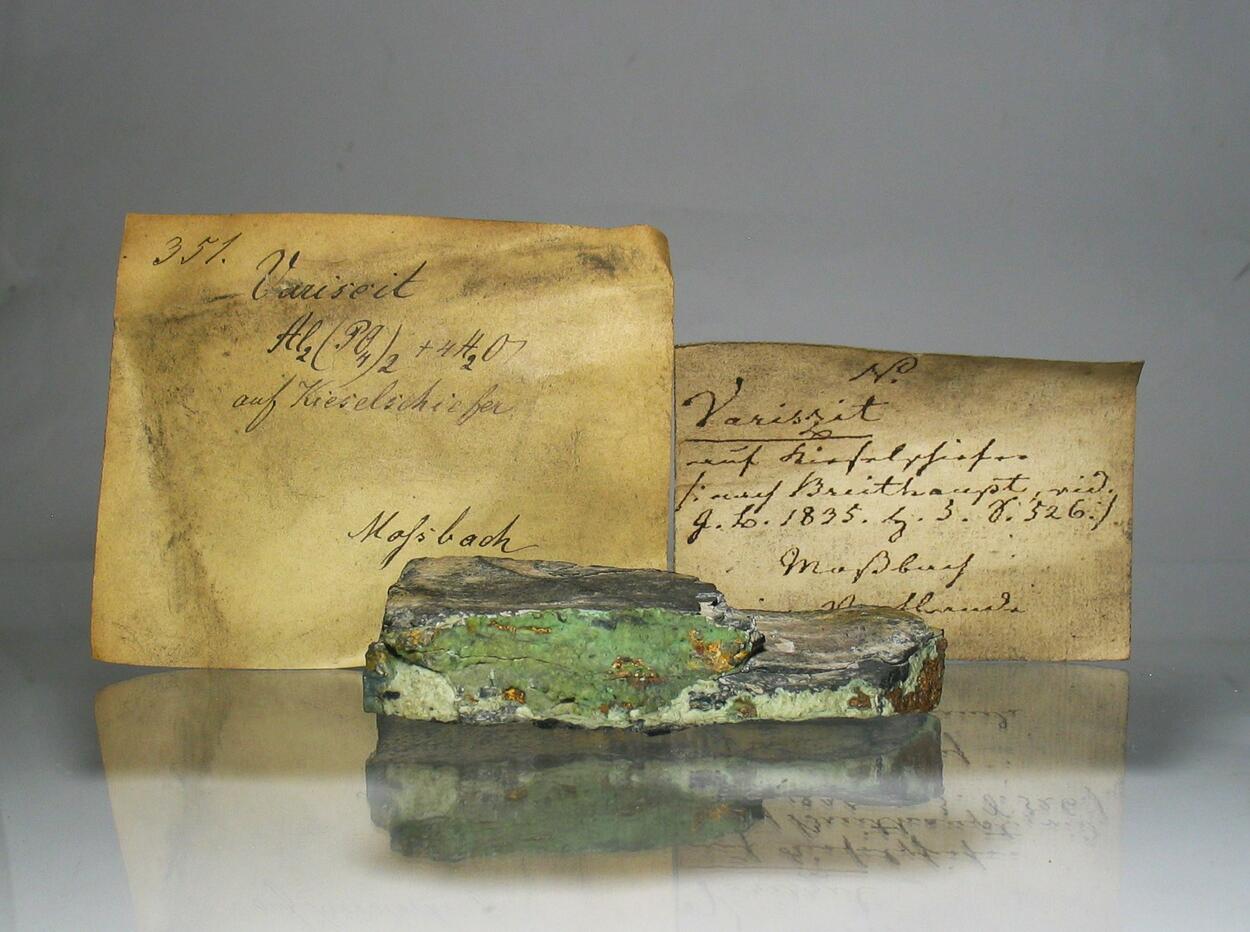 351.
Variscit
Al₂(PO₄)₂ + 4H₂O
auf Kieselschiefer
Mossbach
N.
Variszit
auf Kieselschiefer
/: nach Breithaupt, vid.
1835. 3. S. 526:/
Moßbach